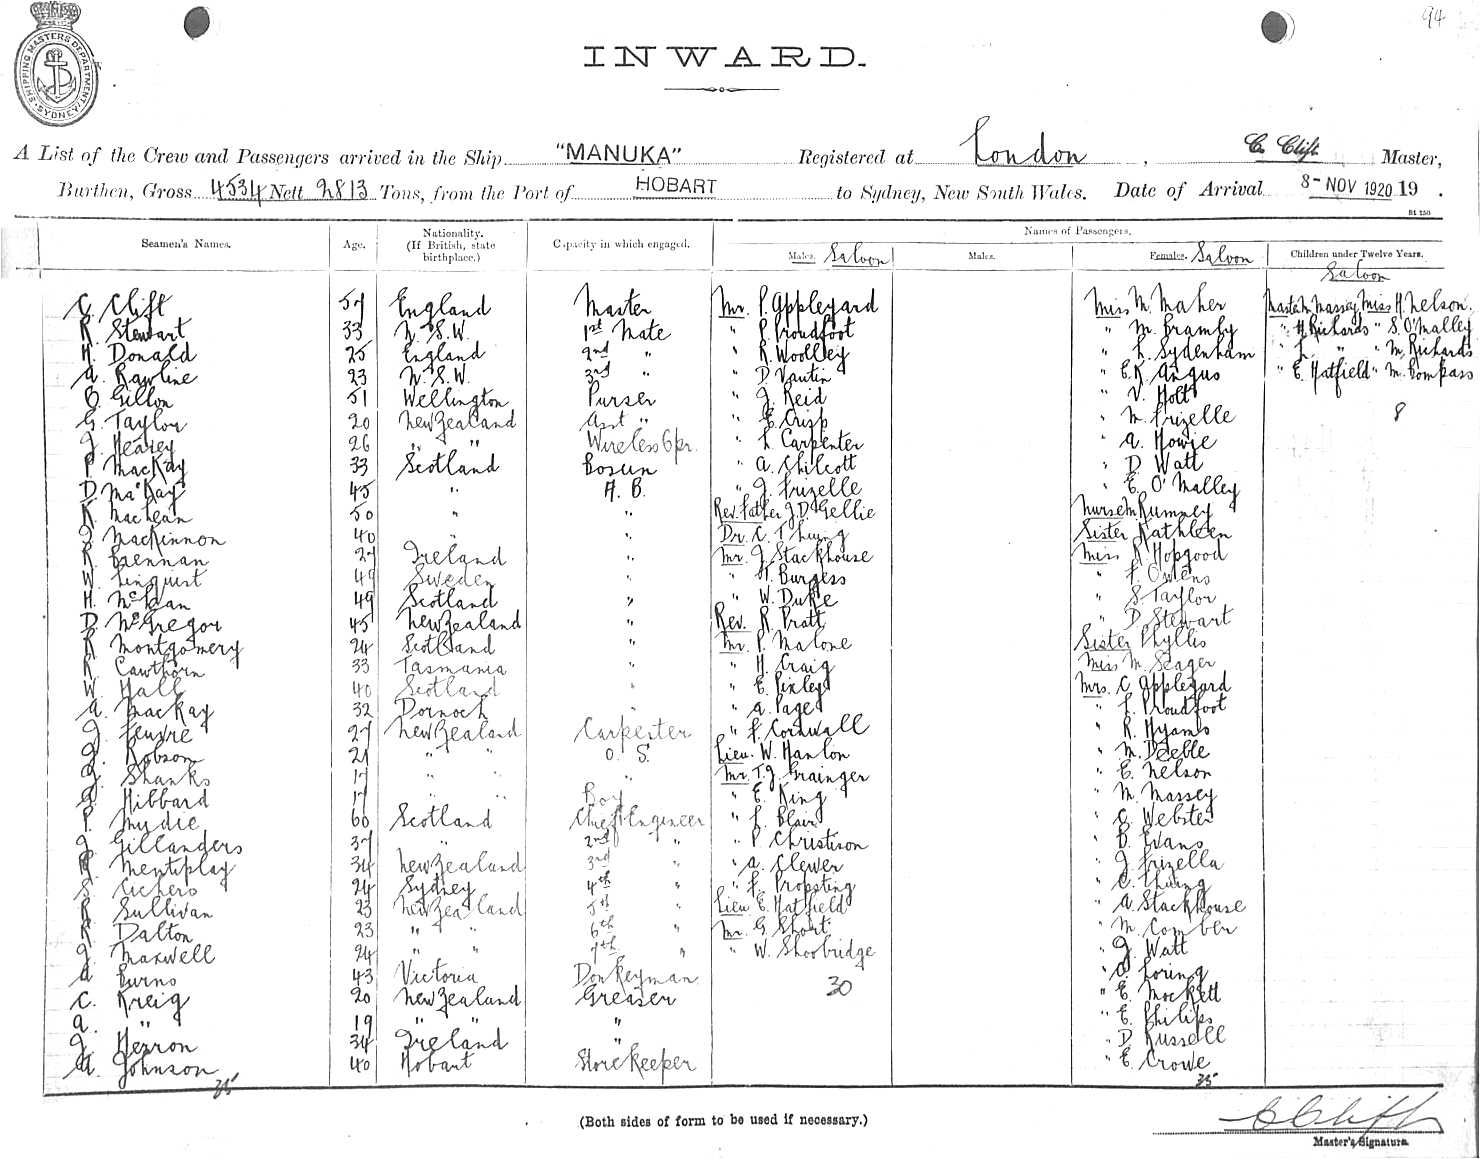 94
SHIPPING MASTERS DEPARTMENT SYDNEY
INWARD.
A List of the Crew and Passengers arrived in the Ship "MANUKA" Registered at London, C. Clift Master,
Burthen, Gross 4534 Nett 2813 Tons, from the Port of HOBART to Sydney, New South Wales. Date of Arrival 8- NOV 1920 19 .
Seamen's Names. Age. Nationality. (If British, state birthplace.) Capacity in which engaged. Names of Passengers.
Males. Saloon Males. Females. Saloon Children under Twelve Years.
Saloon
C. Clift 57 England Master Mr. P. Appleyard Miss M. Maher Master M. Massey Miss H. Nelson.
R. Stewart 33 N. S. W. 1st Mate " P. Proudfoot " M. Bramby " H. Richards " S. O'Malley
H. Donald 25 England 2nd " " R. Woolley " L. Sydenham " L. " " M. Richards
A. Rawline 23 N. S. W. 3rd " " D. Vautin " E. K. Angus " E. Hatfield " M. Compass
O. Gillon 51 Wellington Purser " J. Reid " V. Holt 8
G. Taylor 20 New Zealand Asst " " E. Crisp " M. Frizelle
J. Hearey 26 " " Wireless Opr. " L. Carpenter " A. Howie
P. MacKay 33 Scotland Bosun " A. Chilcott " D. Watt
D. MacKay 45 " A. B. " J. Frizelle " E. O'Malley
R. MacLean 50 " " Rev. Father J. D. Gellie Nurse M. Rumney
J. MacKinnon 40 " " Dr. C. Thung Sister Kathleen
R. Brennan 27 Ireland " Mr. J. Stackhouse Miss S. Hopgood
W. Linquist 49 Sweden " " H. Burgess " F. Owens
H. McLean 49 Scotland " " W. Duke " S. Taylor
D. McGregor 45 New Zealand " Rev. R. Pratt " D. Stewart
R. Montgomery 24 Scotland " Mr. P. Malone Sister Phyllis
R. Cawthorn 33 Tasmania " " H. Craig Miss M. Seager
W. Hall 40 Scotland " " E. Pixley Mrs. C. Appleyard
A. MacKay 32 Dornoch " " A. Page " L. Proudfoot
J. Feuvre 27 New Zealand Carpenter " F. Cornwall " R. Hyams
J. Robson 21 " " O. S. Lieu. W. Hanlon " M. Deeble
J. Shanks 17 " " " Mr. T. J. Grainger " E. Nelson
G. Hibbard 17 " " Boy " E. King " M. Massey
P. Mydie 60 Scotland Chief Engineer " L. Blair " C. Webster
J. Gillanders 37 " 2nd " " P. Christison " B. Evans
R. Mentiplay 34 New Zealand 3rd " " A. Clewer " J. Frizella
S. Cichero 24 Sydney 4th " " F. Propsting " C. Thung
R. Sullivan 23 New Zealand 5th " Lieu E. Hatfield " A. Stackhouse
R. Dalton 23 " " 6th " Mr. G. Short " M. Comber
J. Maxwell 24 " " 7th " " W. Shoobridge " J. Watt
A. Burns 43 Victoria Donkeyman 30 " O. Loring
C. Kreig 20 New Zealand Greaser " E. Mockett
A. " 19 " " " " E. Philips
J. Herron 34 Ireland " " D. Russell
A. Johnson 40 Hobart Storekeeper " E. Crowe
35 35
(Both sides of form to be used if necessary.)
C Clift
Master's Signature.